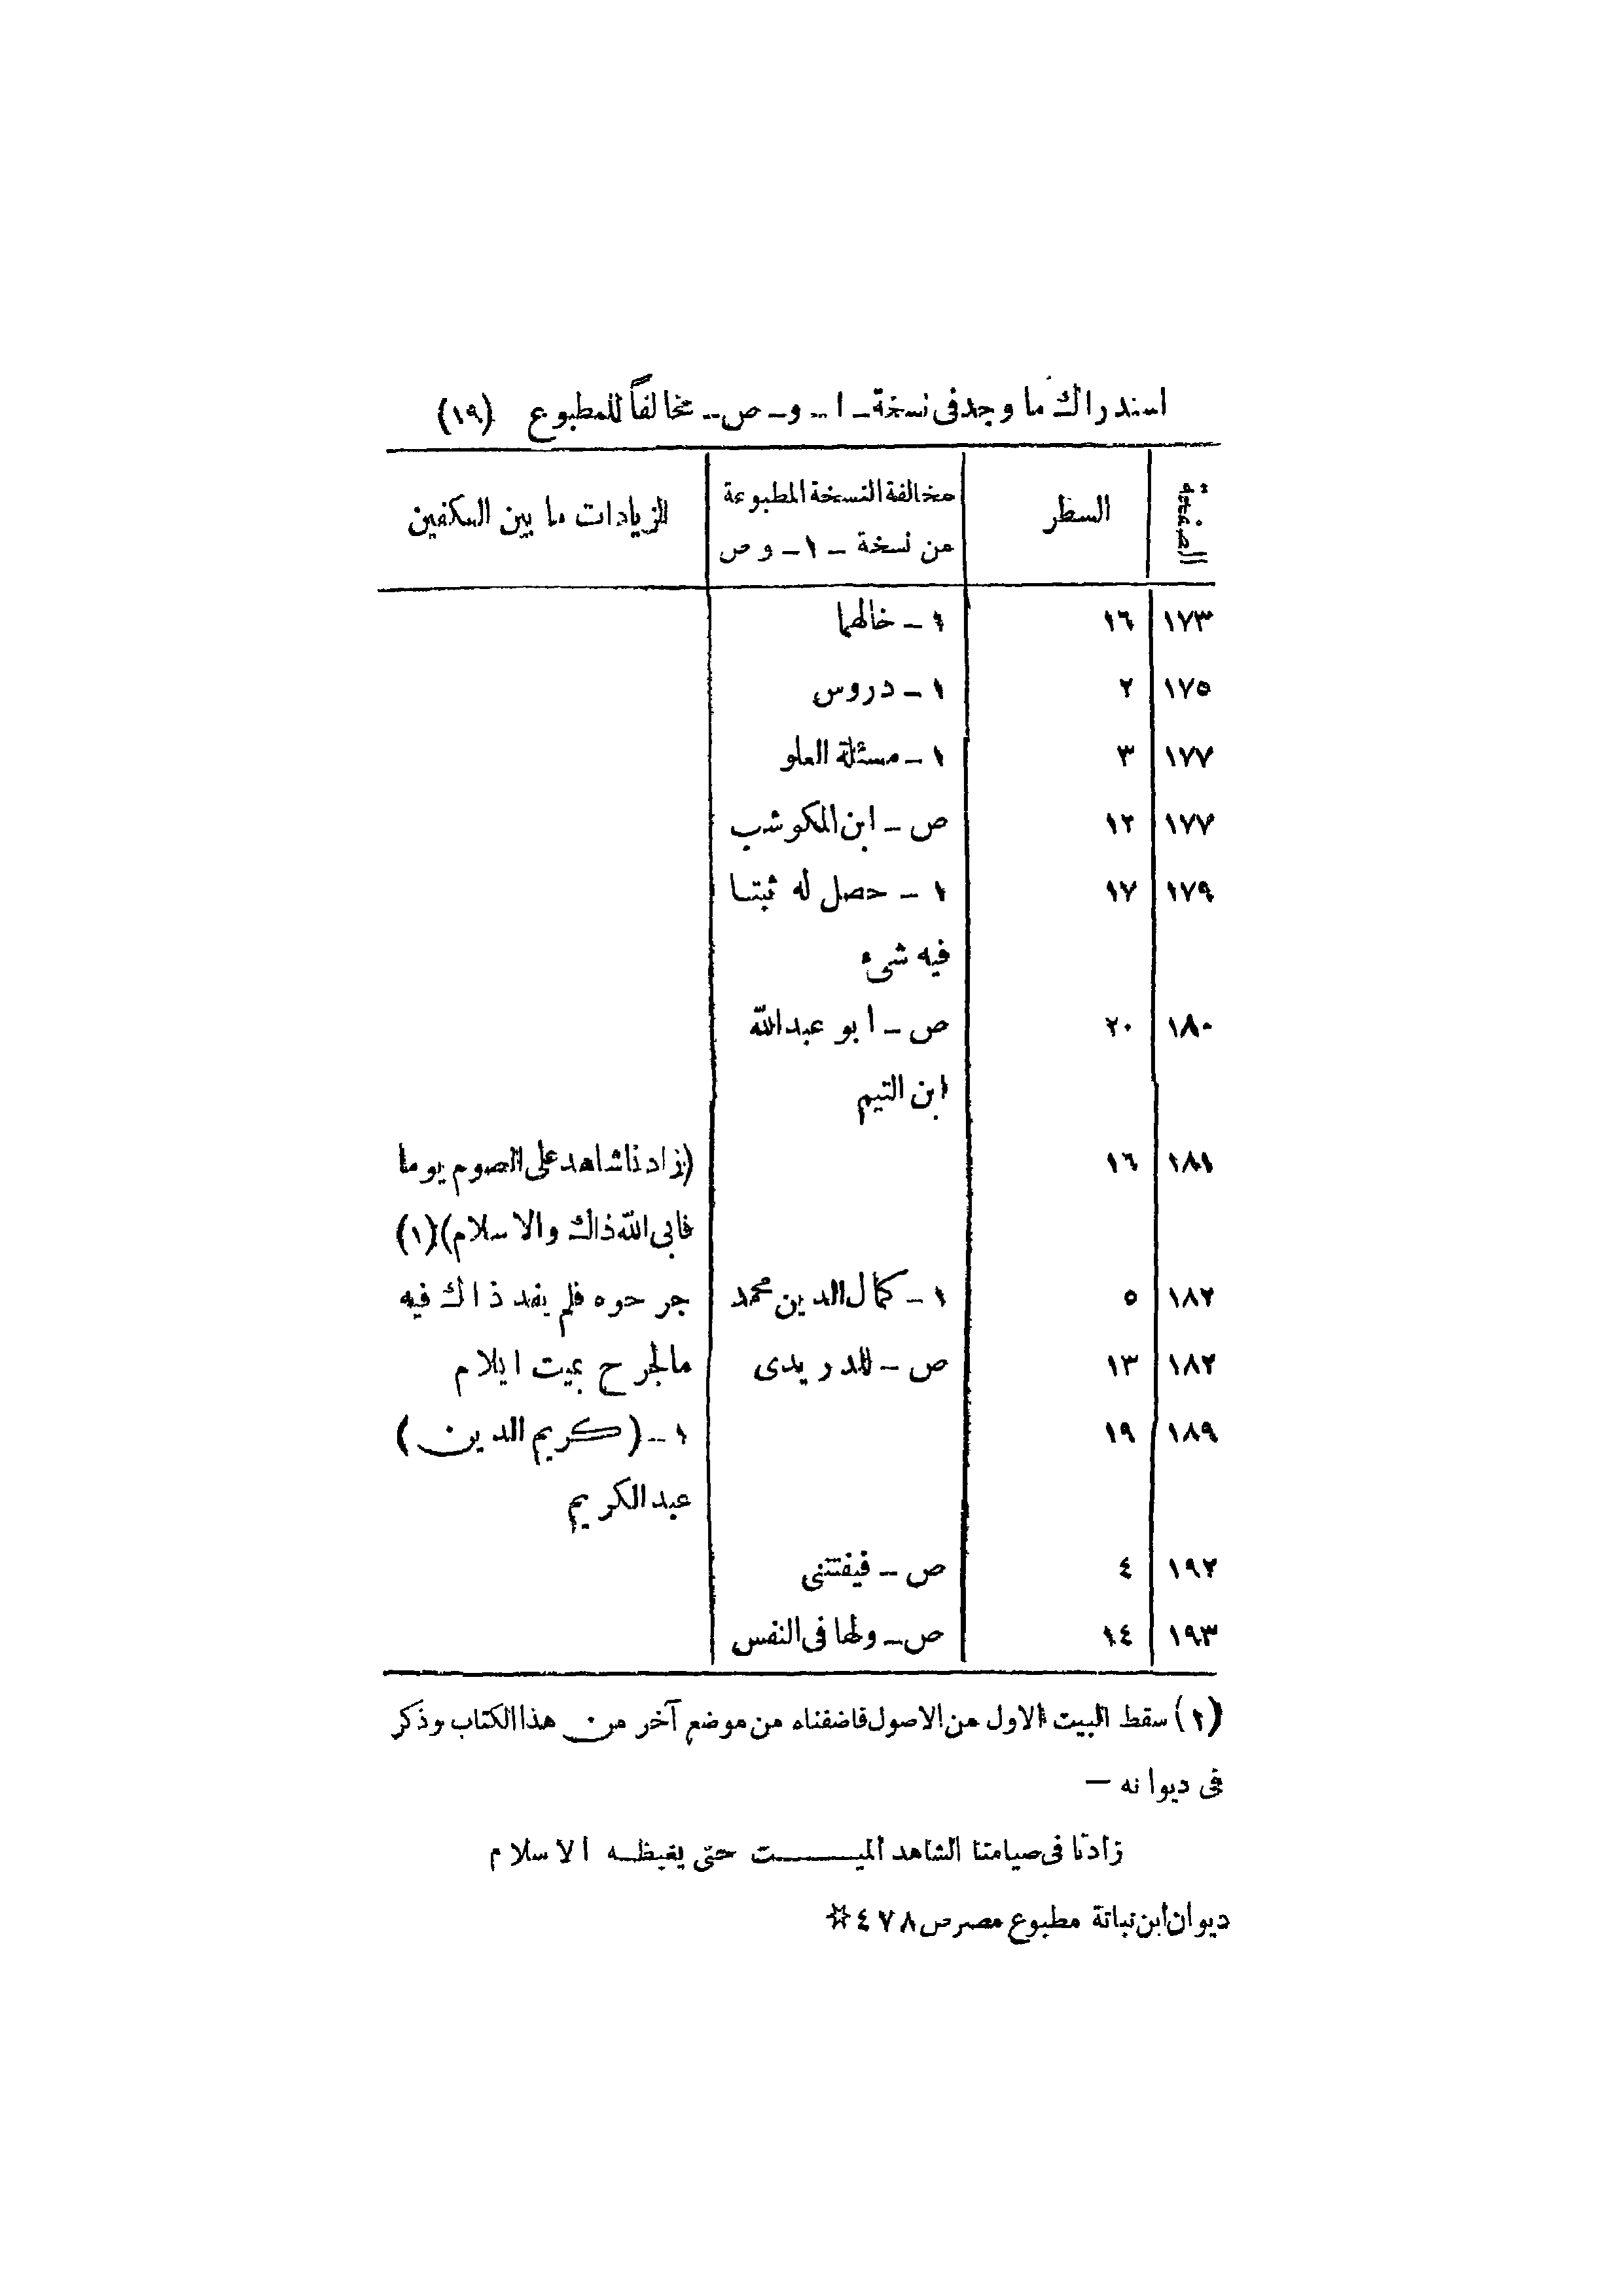 استدراك ما وجد فى نسخة ـ ا ـ و ـ ص ـ مخالفاً للمطبوع (١٩)
الصفحة السطر مخالفة النسخة المطبوعة الزيادات ما بين العكفين
من نسخة ـ ا ـ و ص
١٧٣ ١٦ ا ـ خالهما
١٧٥ ٢ ا ـ دروس
١٧٧ ٣ ا ـ مسئلة العلو
١٧٧ ١٢ ص ـ ابن المكوشب
١٧٩ ١٧ ا ـ حصل له ثبتا
فيه شىء
١٨٠ ٢٠ ص ـ ابو عبدالله
ابن التيم
١٨١ ١٦ (زادنا شاهد على الصوم يوما
فابى الله ذاك والاسلام)(١)
١٨٢ ٥ ا ـ كمال الدين محمد جرحوه فلم يفد ذاك فيه
١٨٢ ١٣ ص ـ للدريدى مالجرح بميت ايلام
١٨٩ ١٩ ا ـ (كريم الدين)
عبدالكريم
١٩٢ ٤ ص ـ فيفتننى
١٩٣ ١٤ ص ـ ولها فى النفس
(١) سقط البيت الاول من الاصول فاضفناه من موضع آخر من هذا الكتاب وذكر
فى ديوانه —
زادنا فى صيامنا الشاهد الميـــت حتى يغيظه الاسلام
ديوان ابن نباتة مطبوع مصر ص ٤٧٨ ☆